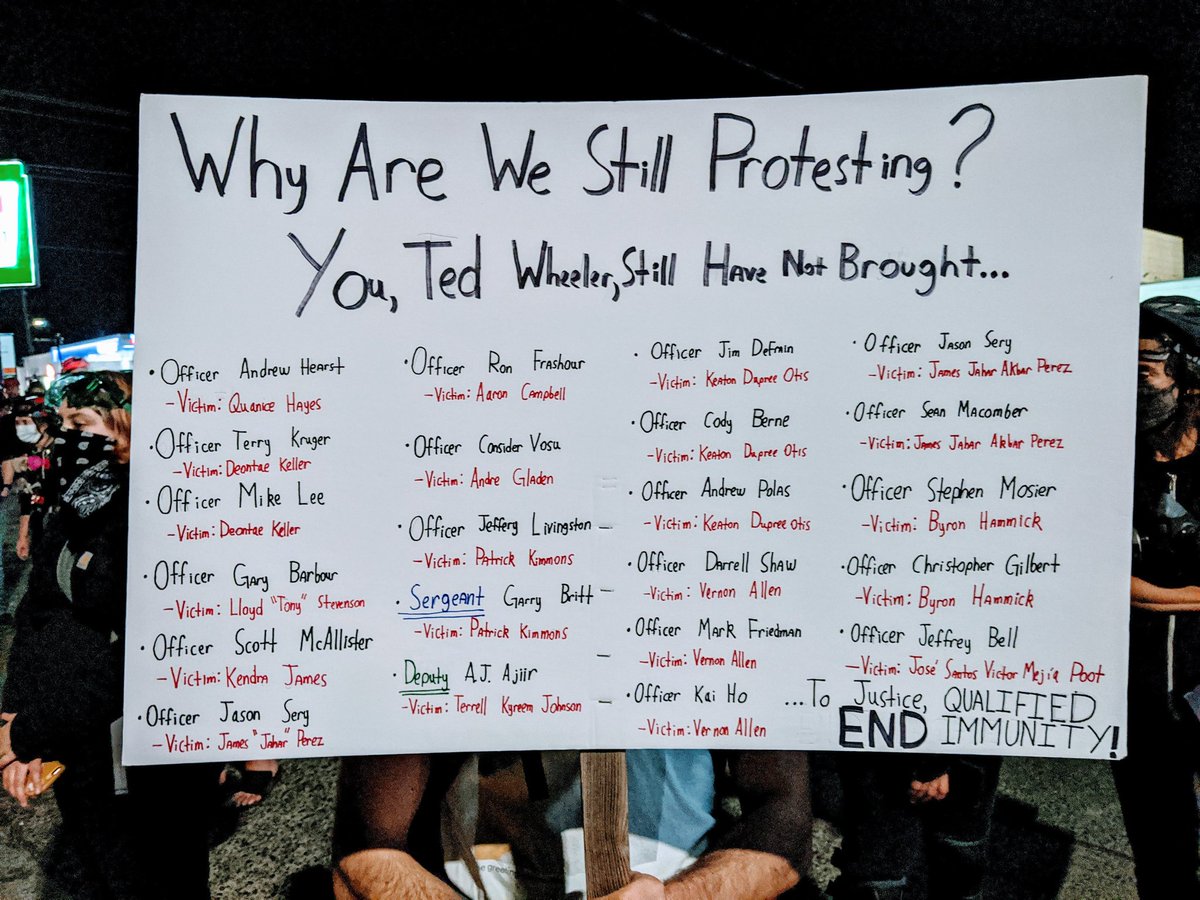 Why Are We Still Protesting?
You, Ted Wheeler, Still Have Not Brought...
• Officer Andrew Hearst
- Victim: Quanice Hayes
• Officer Terry Kruger
- Victim: Deontae Keller
• Officer Mike Lee
- Victim: Deontae Keller
• Officer Gary Barbour
- Victim: Lloyd "Tony" Stevenson
• Officer Scott McAllister
- Victim: Kendra James
• Officer Jason Sery
- Victim: James "Jahar" Perez
• Officer Ron Frashour
- Victim: Aaron Campbell
• Officer Consider Vosu
- Victim: Andre Gladen
• Officer Jeffery Livingston
- Victim: Patrick Kimmons
• Sergeant Garry Britt
- Victim: Patrick Kimmons
• Deputy A.J. Ajiir
- Victim: Terrell Kyreem Johnson
• Officer Jim Defrain
- Victim: Keaton Dupree Otis
• Officer Cody Berne
- Victim: Keaton Dupree Otis
• Officer Andrew Polas
- Victim: Keaton Dupree Otis
• Officer Darrell Shaw
- Victim: Vernon Allen
• Officer Mark Friedman
- Victim: Vernon Allen
• Officer Kai Ho
- Victim: Vernon Allen
• Officer Jason Sery
- Victim: James Jahar Akbar Perez
• Officer Sean Macomber
- Victim: James Jahar Akbar Perez
• Officer Stephen Mosier
- Victim: Byron Hammick
• Officer Christopher Gilbert
- Victim: Byron Hammick
• Officer Jeffrey Bell
- Victim: José Santos Victor Mejía Poot
...To Justice, QUALIFIED
END IMMUNITY!